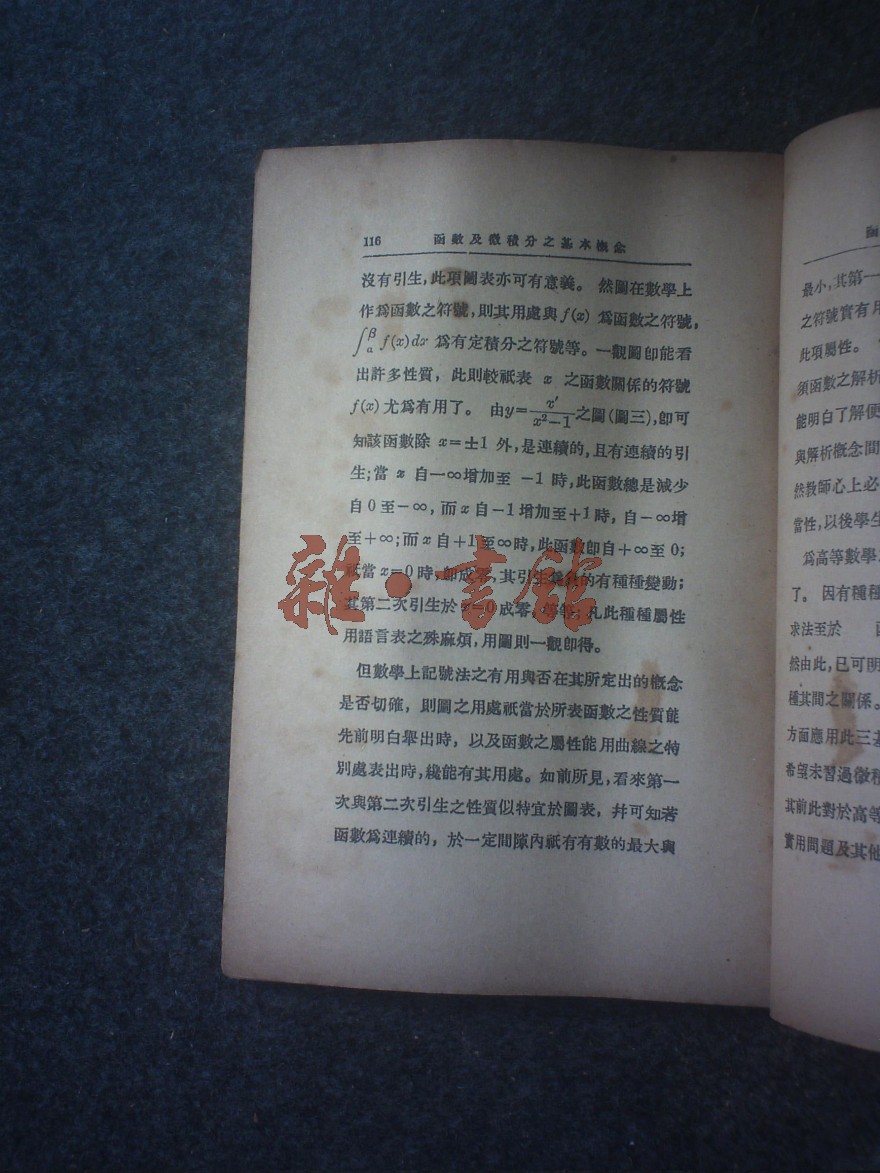 116 函數及微積分之基本概念
沒有引生，此項圖表亦可有意義。 然圖在數學上
作爲函數之符號，則其用處與 f(x) 爲函數之符號，
∫βα f(x)dx 爲有定積分之符號等。一觀圖卽能看
出許多性質，此則較祇表 x 之函數關係的符號
f(x) 尤爲有用了。 由y=x'/(x²−1)之圖(圖三)，卽可
知該函數除 x=±1 外，是連續的，且有連續的引
生；當 x 自−∞增加至 −1 時，此函數總是減少
自 0 至−∞，而 x 自−1增加至+1時，自−∞增
至+∞；而 x 自+1至∞時，此函數卽自+∞至0；
祇當 x=0 時，卽成零，其引生的有種種變動；
其第二次引生於 x=0 成零，等等；凡此種種屬性
用語言表之殊麻煩，用圖則一觀卽得。
但數學上記號法之有用與否在其所定出的概念
是否切確，則圖之用處祇當於所表函數之性質能
先前明白舉出時，以及函數之屬性能用曲線之特
別處表出時，纔能有其用處。如前所見，看來第一
次與第二次引生之性質似特宜於圖表，幷可知若
函數爲連續的，於一定間隙內祇有有數的最大與
雜·書館
函
最小，其第一
之符號實有用
此項屬性。
須函數之解析
能明白了解便
與解析概念間
然教師心上必
當性，以後學生
爲高等數學
了。 因有種種
求法至於 函
然由此，已可明
種其間之關係。
方面應用此三基
希望未習過微積
其前此對於高等
實用問題及其他